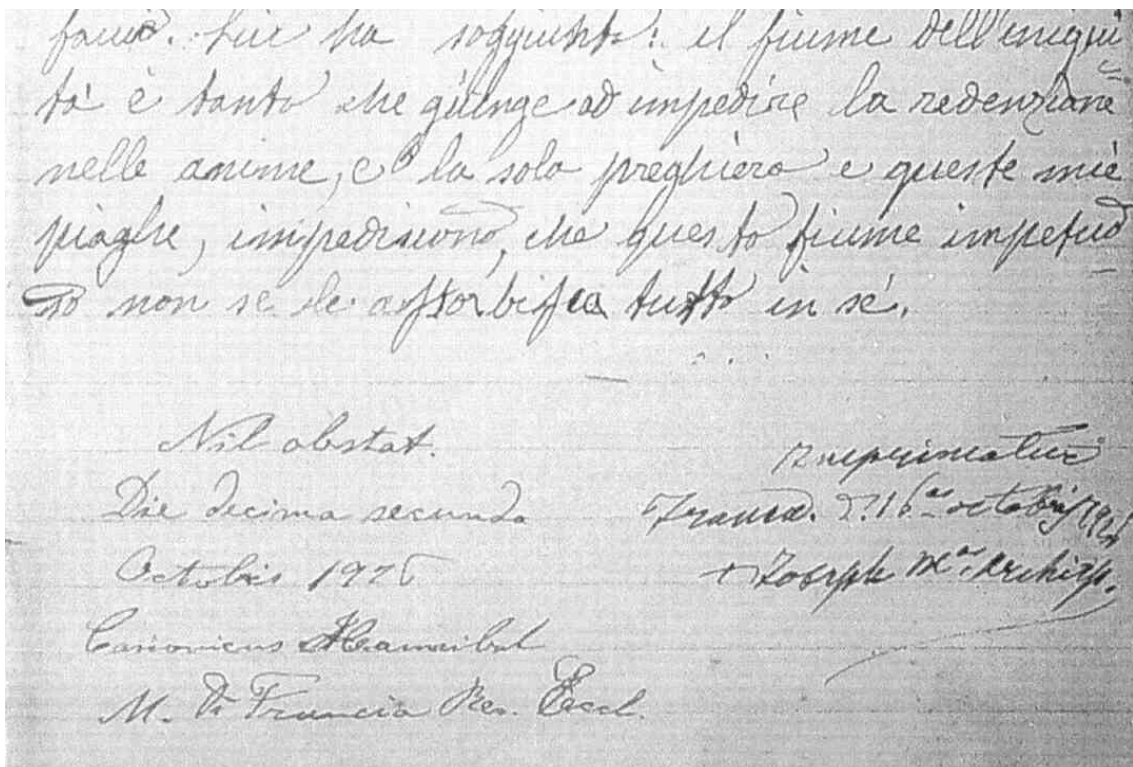 Lui ha soggiunto: il fiume dell'iniqui
tà è tanto che giunge ad impedire la redenzione
nelle anime, e la sola preghiera e queste mie
piaghe, impediscono, che questo fiume impetuo
so non se le assorbisca tutto in sé.
Nil obstat.
Die decima secunda
Octobris 1926
Canonicus Hannibal
M. Di Francia Rev. Eccl.
Imprimatur
Octobris 1926
+ Joseph M.ª Archiep.